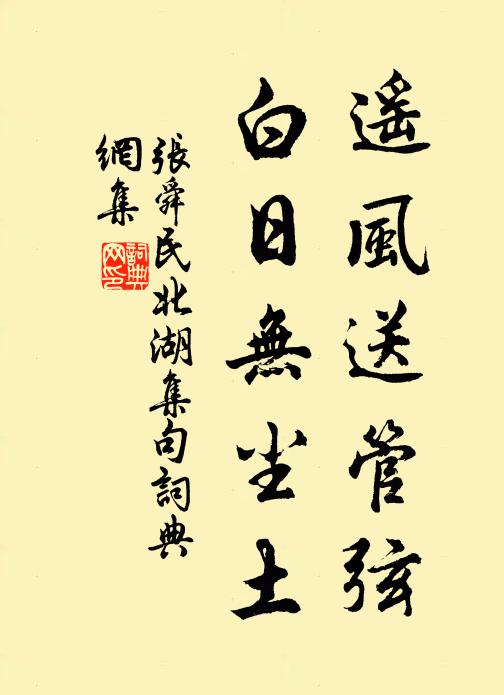 遥風送管弦
白日無尘土
張舜民北湖集句詞典
網集
詞典
网印